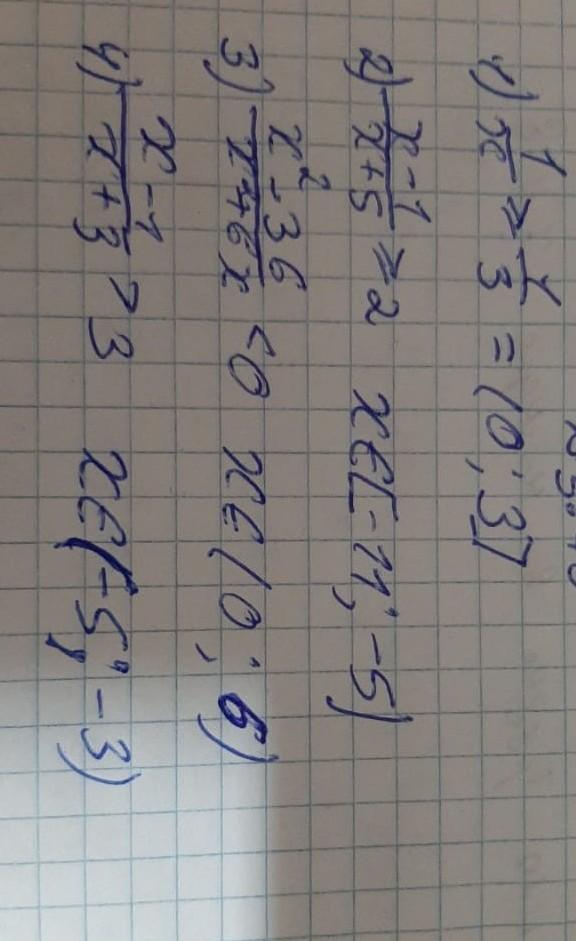 1) 1/x ≥ 1/3 = (0; 3]
2) x-1/x+5 ≥ 2 x∈[-11; -5)
3) x²-36/x²+6x <0 x∈(0; 6)
4) x-1/x+3 >3 x∈(-5; -3)